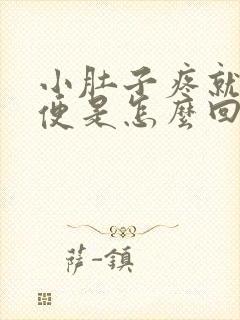 小肚子疼就
便是怎麼回
薩-鎮